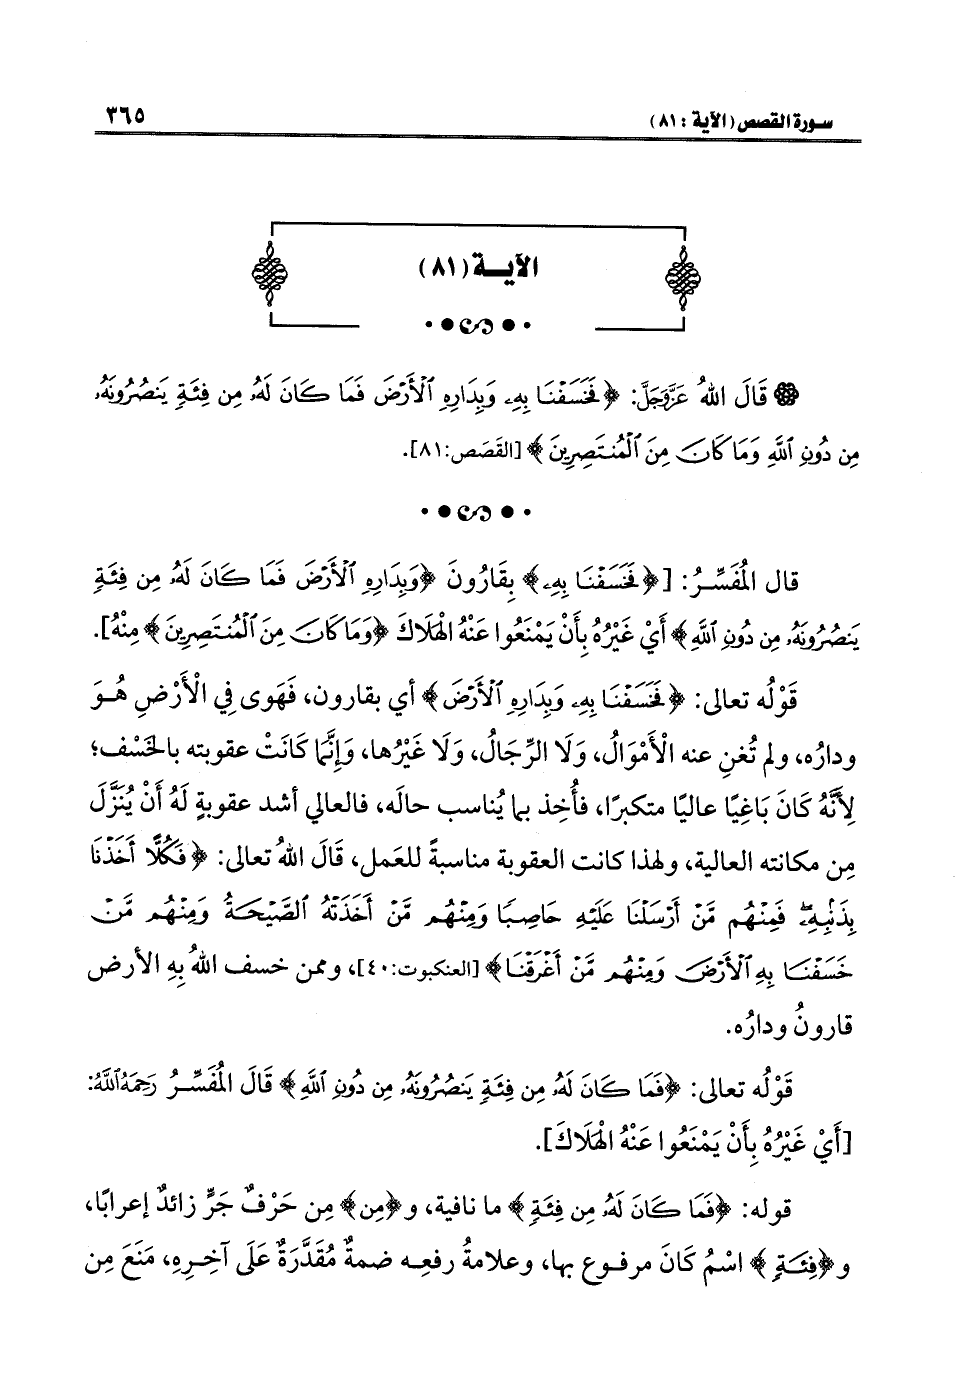 سورة القصص (الآية : ٨١)
٣٦٥
الآيــة (٨١)
قَالَ اللهُ عَزَّوَجَلَّ: ﴿فَخَسَفْنَا بِهِۦ وَبِدَارِهِ ٱلْأَرْضَ فَمَا كَانَ لَهُۥ مِن فِئَةٍ يَنصُرُونَهُۥ
مِن دُونِ ٱللَّهِ وَمَا كَانَ مِنَ ٱلْمُنتَصِرِينَ﴾ [القَصَص:٨١].
قال المُفَسِّرُ: [﴿فَخَسَفْنَا بِهِۦ﴾ بِقَارُونَ ﴿وَبِدَارِهِ ٱلْأَرْضَ فَمَا كَانَ لَهُۥ مِن فِئَةٍ
يَنصُرُونَهُۥ مِن دُونِ ٱللَّهِ﴾ أَيْ غَيْرُهُ بِأَنْ يَمْنَعُوا عَنْهُ الهَلَاكَ ﴿وَمَا كَانَ مِنَ ٱلْمُنتَصِرِينَ﴾ مِنْهُ].
قَوْلُه تعالى: ﴿فَخَسَفْنَا بِهِۦ وَبِدَارِهِ ٱلْأَرْضَ﴾ أي بقارون، فَهَوى فِي الْأَرْضِ هُـوَ
ودارُه، ولم تُغنِ عنه الْأَمْوَالُ، وَلَا الرِّجَالُ، وَلَا غَيْرُها، وَإِنَّمَا كَانَتْ عقوبته بالخَسْف؛
لِأَنَّهُ كَانَ بَاغِيًا عاليًا متكبرا، فأُخِذ بما يُناسب حالَه، فالعالي أشد عقوبةٍ لَهُ أَنْ يُنَزَّلَ
مِن مكانته العالية، ولهذا كانت العقوبة مناسبةً للعَمل، قَالَ اللهُ تعالى: ﴿فَكُلًّا أَخَذْنَا
بِذَنۢبِهِۦ ۖ فَمِنْهُم مَّنْ أَرْسَلْنَا عَلَيْهِ حَاصِبًا وَمِنْهُم مَّنْ أَخَذَتْهُ ٱلصَّيْحَةُ وَمِنْهُم مَّنْ
خَسَفْنَا بِهِ ٱلْأَرْضَ وَمِنْهُم مَّنْ أَغْرَقْنَا﴾ [العنكبوت:٤٠]، وممن خسف اللهُ بِهِ الأرض
قارونُ ودارُه.
قَوْلُه تعالى: ﴿فَمَا كَانَ لَهُۥ مِن فِئَةٍ يَنصُرُونَهُۥ مِن دُونِ ٱللَّهِ﴾ قَالَ المُفَسِّرُ رَحِمَهُ اللَّهُ:
[أَيْ غَيْرُهُ بِأَنْ يَمْنَعُوا عَنْهُ الْهَلَاكَ].
قوله: ﴿فَمَا كَانَ لَهُۥ مِن فِئَةٍ﴾ ما نافية، و﴿مِن﴾ مِن حَرْفُ جَرٍّ زائدٌ إعرابًا،
و﴿فِئَةٍ﴾ اسْمُ كَانَ مرفـوع بها، وعلامةُ رفعِـه ضمةٌ مُقَدَّرَةٌ عَلَى آخِـرِهِ، مَنَعَ مِن